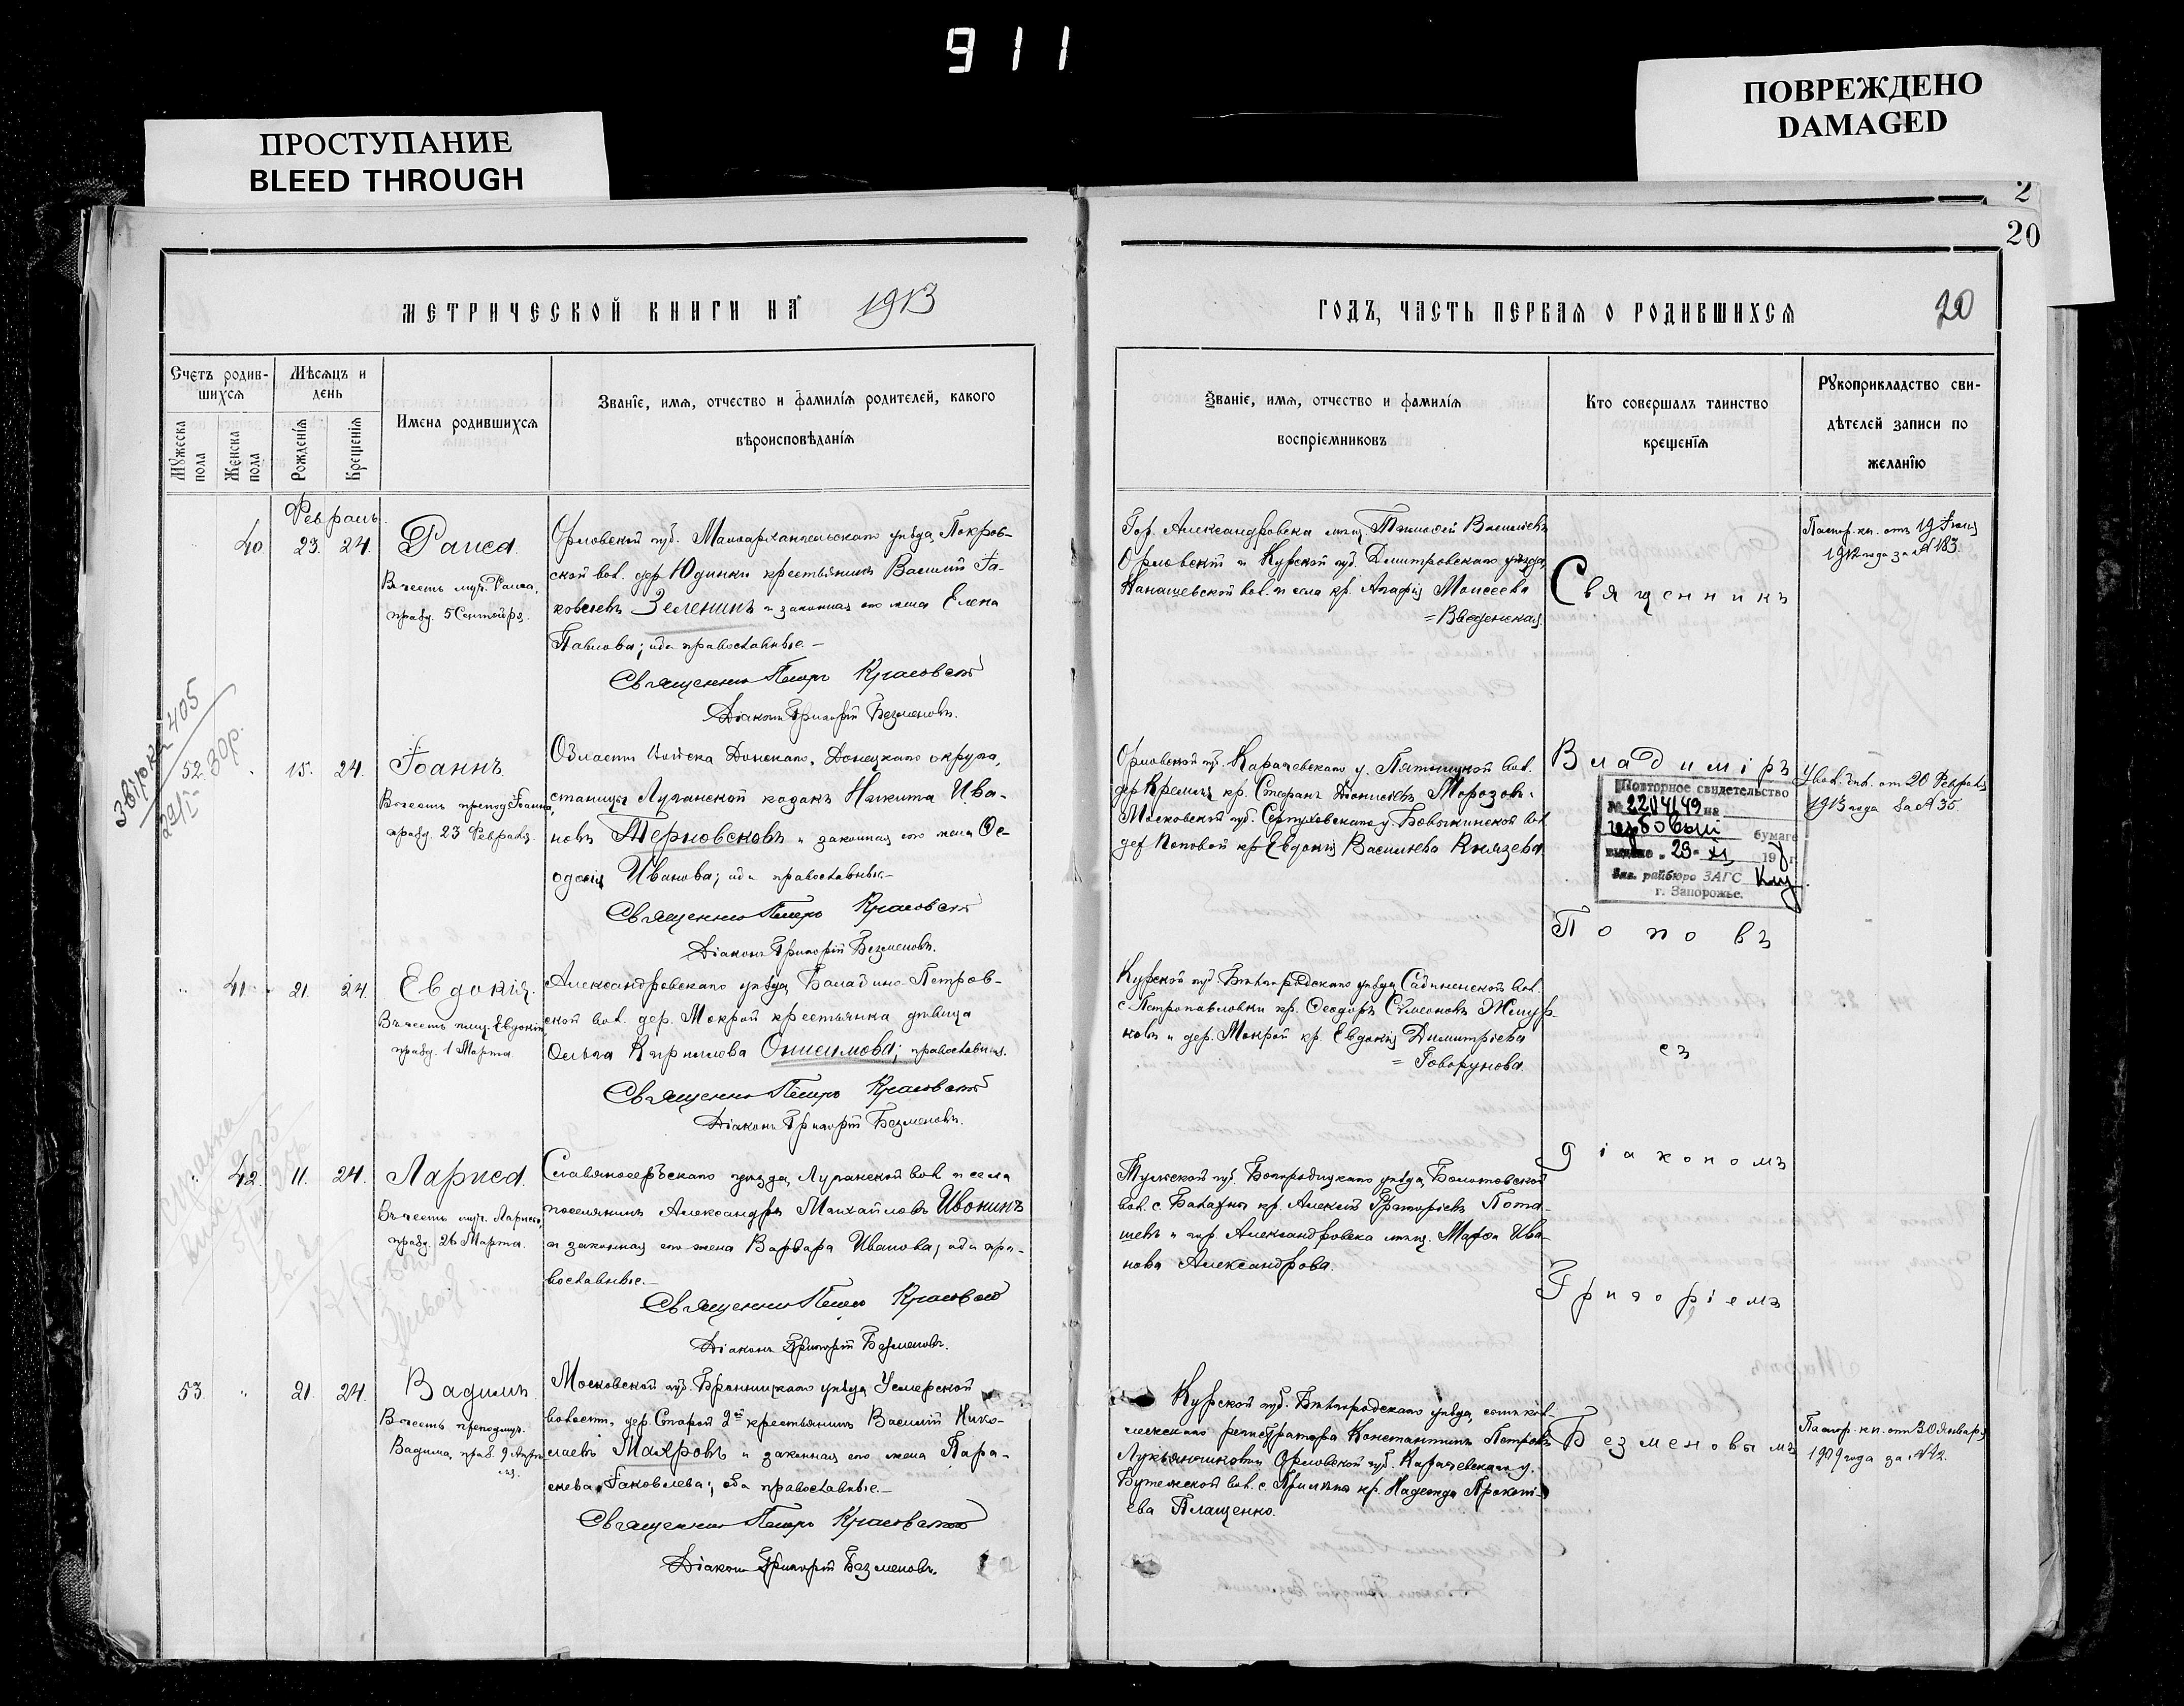 911
ПРОСТУПАНИЕ
BLEED THROUGH
ПОВРЕЖДЕНО
DAMAGED
2
20
МЕТРИЧЕСКОЙ КНИГИ НА 1913
ГОДЪ, ЧАСТЬ ПЕРВАЯ О РОДИВШИХСЯ
20
Счетъ родив-
шихся
Мужеска
пола
Женска
пола
Мѣсяцъ и
день
Рожденія
Крещенія
Имена родившихся
Званіе, имя, отчество и фамилія родителей, какого
вѣроисповѣданія
Званіе, имя, отчество и фамилія
воспріемниковъ
Кто совершалъ таинство
крещенія
Рукоприкладство сви-
дѣтелей записи по
желанію
Февраль.
40. 23. 24.
Раиса.
Въ честь муч. Раисы,
празд. 5 Сентября.
Орловской губ. Малоархангельскаго уѣзда, Покров-
ской вол. дер. Юдинки крестьянинъ Василій Іа-
ковлевъ Зеленинъ и законная его жена Елена
Павлова; оба православные.
Священникъ Петръ Красовскій
Діаконъ Григорій Безменовъ.
Гор. Александровска мѣщ. Тимофей Васильевъ
Орловскій и Курской губ. Димитровскаго уѣзда,
вол. и села кр. Агафія Моисеева
= Введенская.
Паспор. кн. отъ 19
1912 года за № 183.
Звірка 405
22/I-30р.
52. 15. 24.
Іоаннъ.
Въ честь препод. Іоанна
празд. 23 Февраля.
Области Войска Донскаго, Донецкаго округа,
станицы Луганской козакъ Никита Ива-
новъ Терновсковъ и законная его жена Ѳе-
одосія Иванова; оба православные.
Священникъ Петръ Красовскій
Діаконъ Григорій Безменовъ.
Орловской губ. Карачевскаго у. Пятницкой вол.
дер. кр. Стефанъ Діонисіевъ Морозовъ.
Московской губ. Серпуховскаго у. вол.
дер. Поповой кр. Евдокія Васильева Князева.
Увол. бил. от 20 Февраля
1913 года за № 35.
Повторное свидетельство
№ 2204149 на
гербовый бумаге
выдано " 29 - XI 19 г.
Зав. райбюро ЗАГС
г. Запорожье.
41. 21. 24.
Евдокія.
Въ честь прмц. Евдокіи,
празд. 1 Марта.
Александровскаго уѣзда, Балабино-Петров-
ской вол. дер. Мокрой крестьянка дѣвица
Ольга Кириллова Онисимова; православная.
Священникъ Петръ Красовскій
Діаконъ Григорій Безменовъ.
Курской губ. Бѣлгородскаго уѣзда, вол.
с. Петропавловки кр. Ѳеодоръ Симеоновъ
ковъ и дер. Мокрой кр. Евдокія Димитріева
= Говорунова.
42. 11. 24.
Лариса.
Въ честь муч. Ларисы,
празд. 26 Марта.
Славяносербскаго уѣзда, Луганской вол. и села
поселянинъ Александръ Михайловъ Ивонинъ
и законная его жена Варвара Иванова; оба пра-
вославные.
Священникъ Петръ Красовскій
Діаконъ Григорій Безменовъ.
Тульской губ. Богородицкаго уѣзда,
вол. с. кр. Алексѣй Григоріевъ Пота-
шевъ и гор. Александровска мѣщ. Марѳа Ива-
нова Александрова.
53. 21. 24.
Вадимъ.
Въ честь преподмуч.
Вадима, празд. 9 Апрѣ-
ля.
Московской губ. Бронницкаго уѣзда, Усмерской
волости, дер. Старой 2ой крестьянинъ Василій Нико-
лаевъ Махровъ и законная его жена Пара-
скева Іаковлева; оба православные.
Священникъ Петръ Красовскій
Діаконъ Григорій Безменовъ.
Курской губ. Бѣлгородскаго уѣзда, сынъ кол-
лежскаго регистратора Константинъ Петровъ
Лукьянчиковъ и Орловской губ. Карачевскаго у.
вол. с. кр. Надежда Прокопі-
ева Плащенко.
Паспор. кн. отъ 30 Января
1909 года за № 42.
Священникъ
Владиміръ
Поповъ
съ
діакономъ
Григоріемъ
Безменовымъ